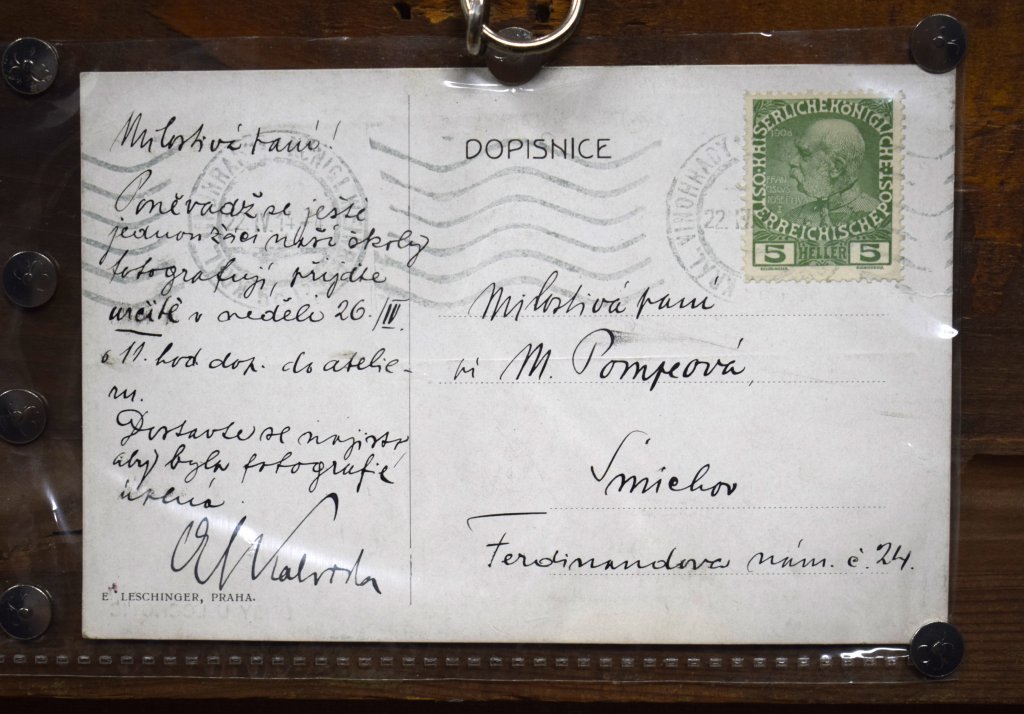 Milostivá paní!
Poněvadž se ještě
jednou žáci naší školy
fotografují, přijďte
určitě v neděli 26./IV.
o 11. hod dop. do atelie-
ru.
Dostavte se najisto
aby byla fotografie
úplná.
Kalvoda
E. LESCHINGER, PRAHA.
DOPISNICE
KAISERLICHEKÖNIGLICHE
ÖSTERREICHISCHE POST
1908
5 HELLER 5
KRÁL. VINOHRADY
22.
Milostivá paní
M. Pompeová,
Smíchov
Ferdinandova nám. č. 24.